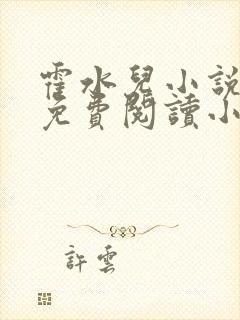 霍水兒小說
免費閱讀小
許雲